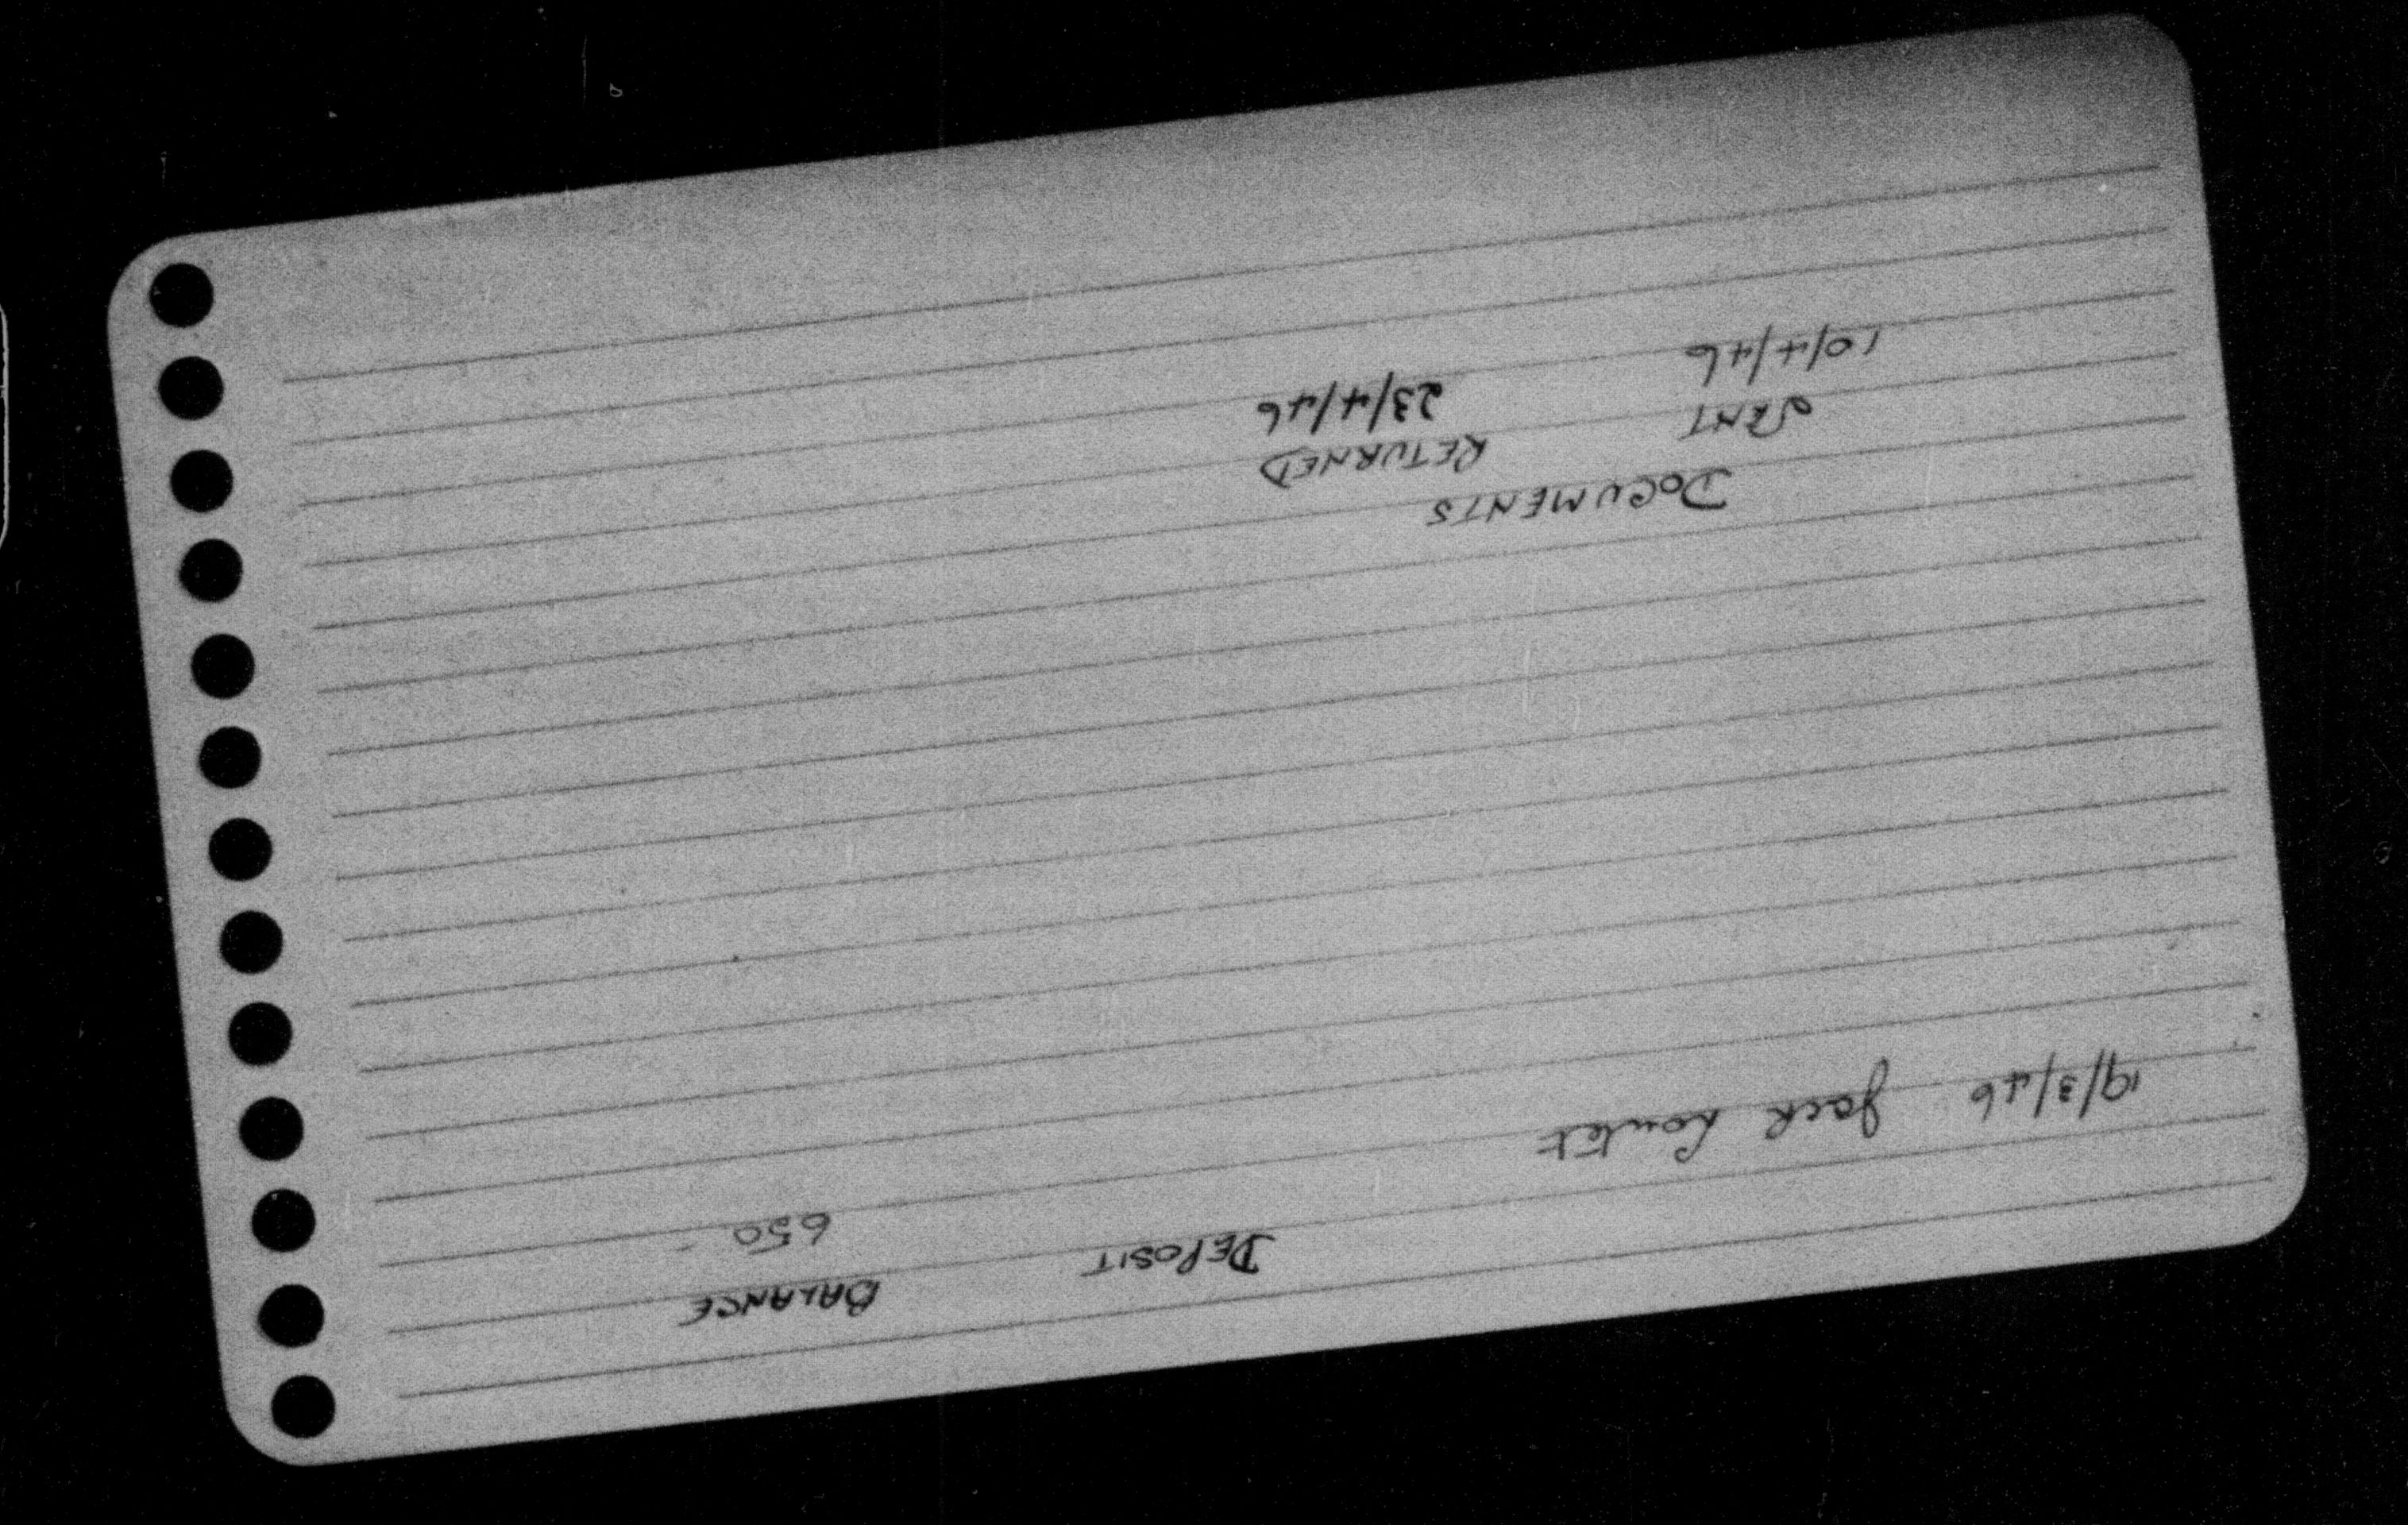 DEPOSIT BALANCE
19/3/46 Jack 650 -
DOCUMENTS
SENT RETURNED
10/4/46 23/4/46